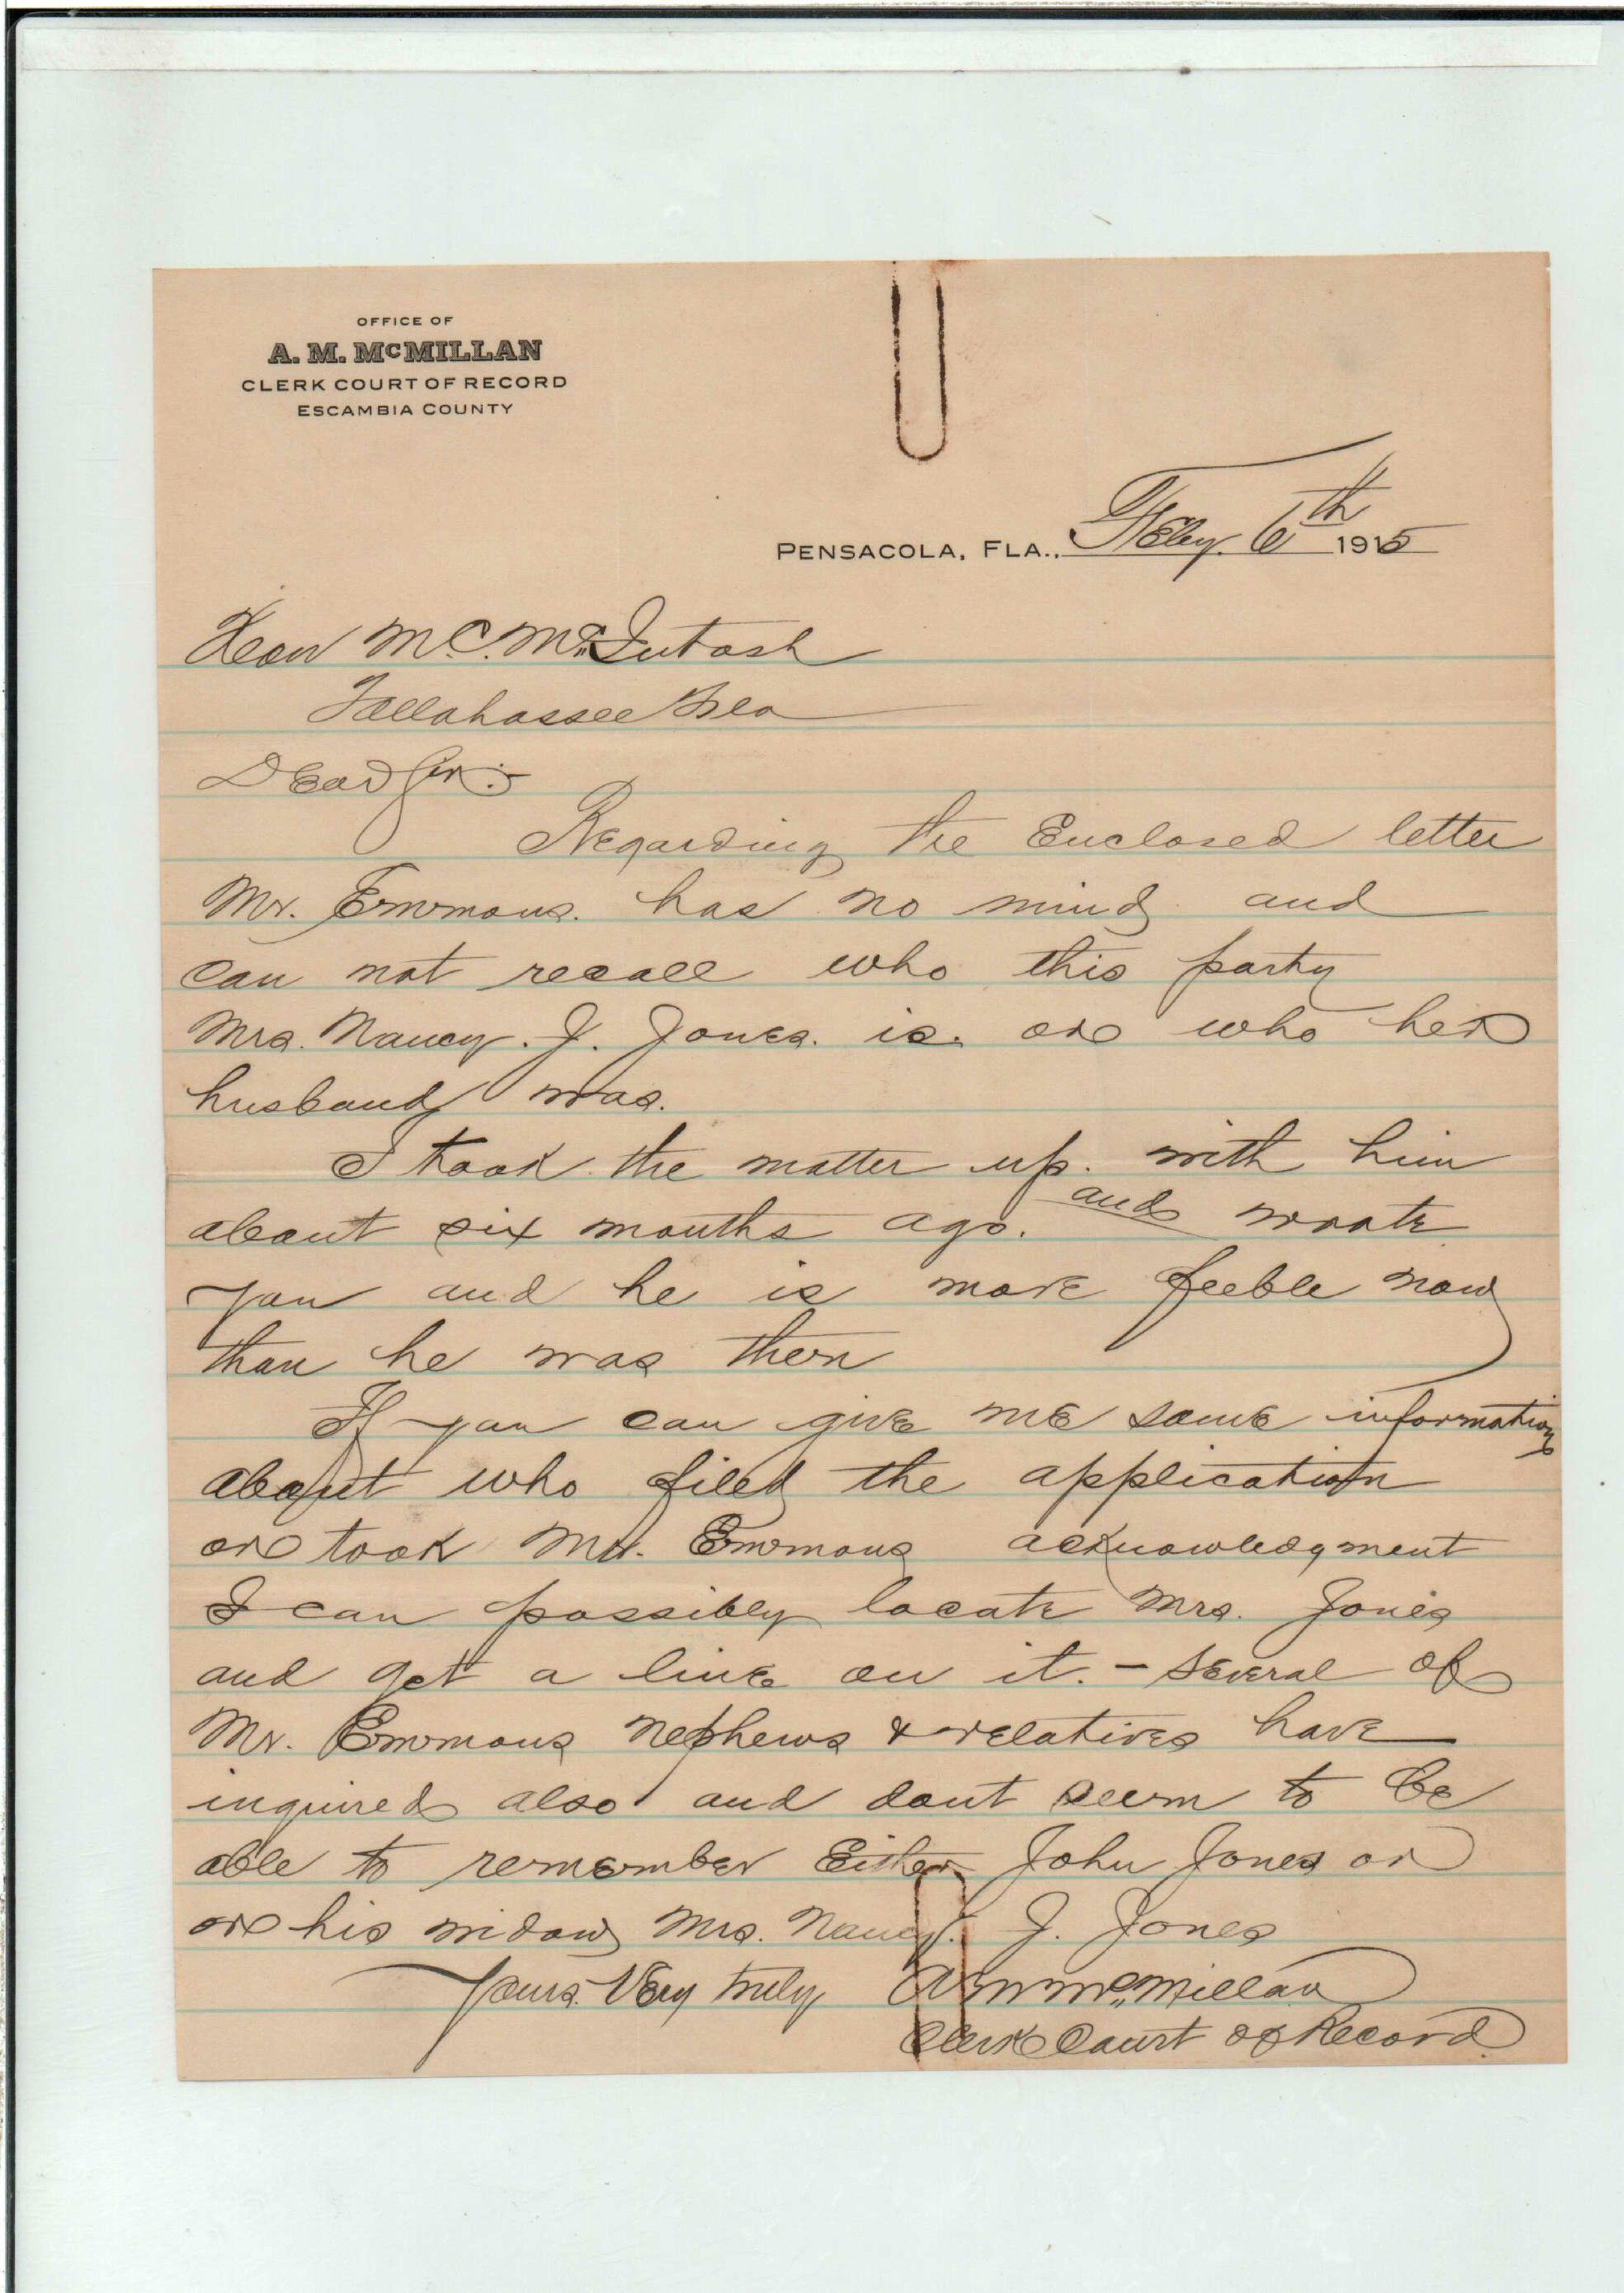 OFFICE OF
A. M. McMILLAN
CLERK COURT OF RECORD
ESCAMBIA COUNTY
PENSACOLA, FLA., Feby. 6th 1915
Hon M.C. McIntosh
Tallahassee Fla
Dear Sir:-
Regarding the Enclosed letter
Mr. Emmons. has no mind and
can not recall who this party
Mrs. Nancy. J. Jones. is. or who her
husband was.
I took the matter up. with him
about six months ago. and wrote
you and he is more feeble now
than he was then
If you can give me some information
about who filed the application
or took Mr. Emmons acknowledgment
I can possibly locate Mrs. Jones
and get a line on it. - Several of
Mr. Emmons Nephews & relatives have
inquired also and dont seem to be
able to remember Either John Jones or
or his widow Mrs. Nancy. J. Jones
Yours. Very truly A M McMillan
Clerk Court of Record.